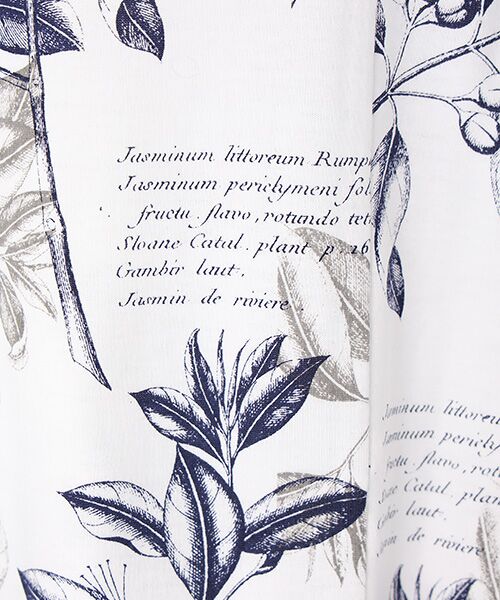 Jasminum littoreum Rump
Jasminum periclymeni fol
fructu flavo, rotundo tet
Sloane Catal. plant p. 26
Gambir laut.
Jasmin de riviere.
Jasminum littoreu
Jasminum pericly
fructu flavo, rotu
Sloane Catal. plant
Gambir laut.
Jasmin de riviere